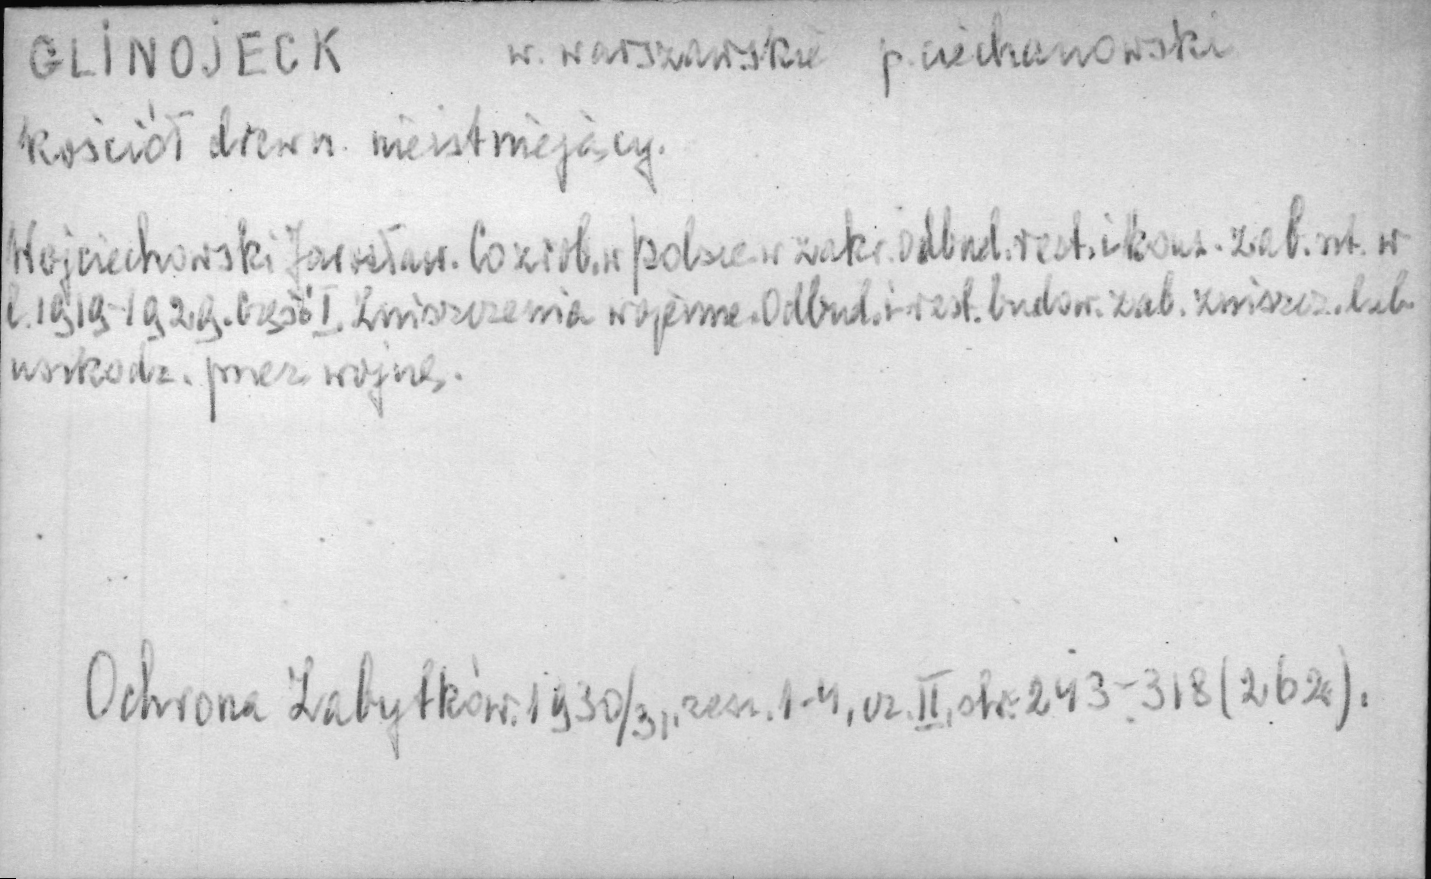 GLINOJECK w. warszawskie p. ciechanowski
Kościół drewn. nieistniejący.
Wojciechowski Jarosław. Co zrob. w Polsce w zakr. odbud. rest. i kons. zab. szt. w
l. 1919-1929. Część I. Zniszczenia wojenne. Odbud. i rest. budow. zab. zniszcz. lub
uszkodz. przez wojnę.
Ochrona Zabytków. 1930/31, zesz. 1-4, cz. II, str. 243-318 (262).